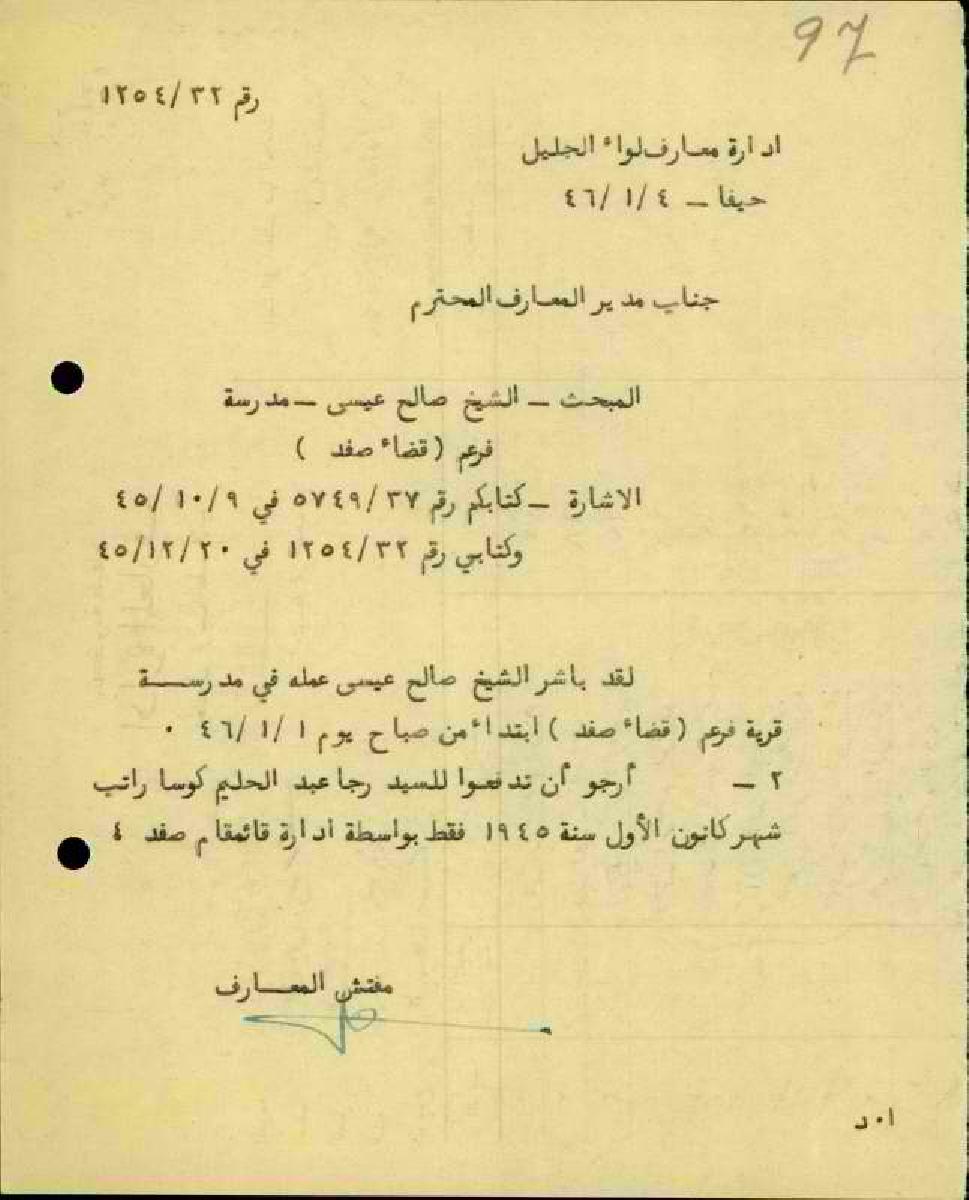 97
رقم ١٢٥٤/٣٢
ادارة معارف لواء الجليل
حيفا – ٤/١/٤٦
جناب مدير المعارف المحترم
المبحث – الشيخ صالح عيسى – مدرسة
فرعم (قضاء صفد )
الاشارة – كتابكم رقم ٥٧٤٩/٣٧ في ٤٥/١٠/٩
وكتابي رقم ١٢٥٤/٣٢ في ٤٥/١٢/٢٠
لقد باشر الشيخ صالح عيسى عمله في مدرســـة
قرية فرعم (قضاء صفد ) ابتداء من صباح يوم ٤٦/١/١ ٠
٢ – أرجو أن تدفعوا للسيد رجا عبد الحليم كوسا راتب
شهر كانون الأول سنة ١٩٤٥ فقط بواسطة ادارة قائمقام صفد ٤
مفتش المعـــارف
ا٠د